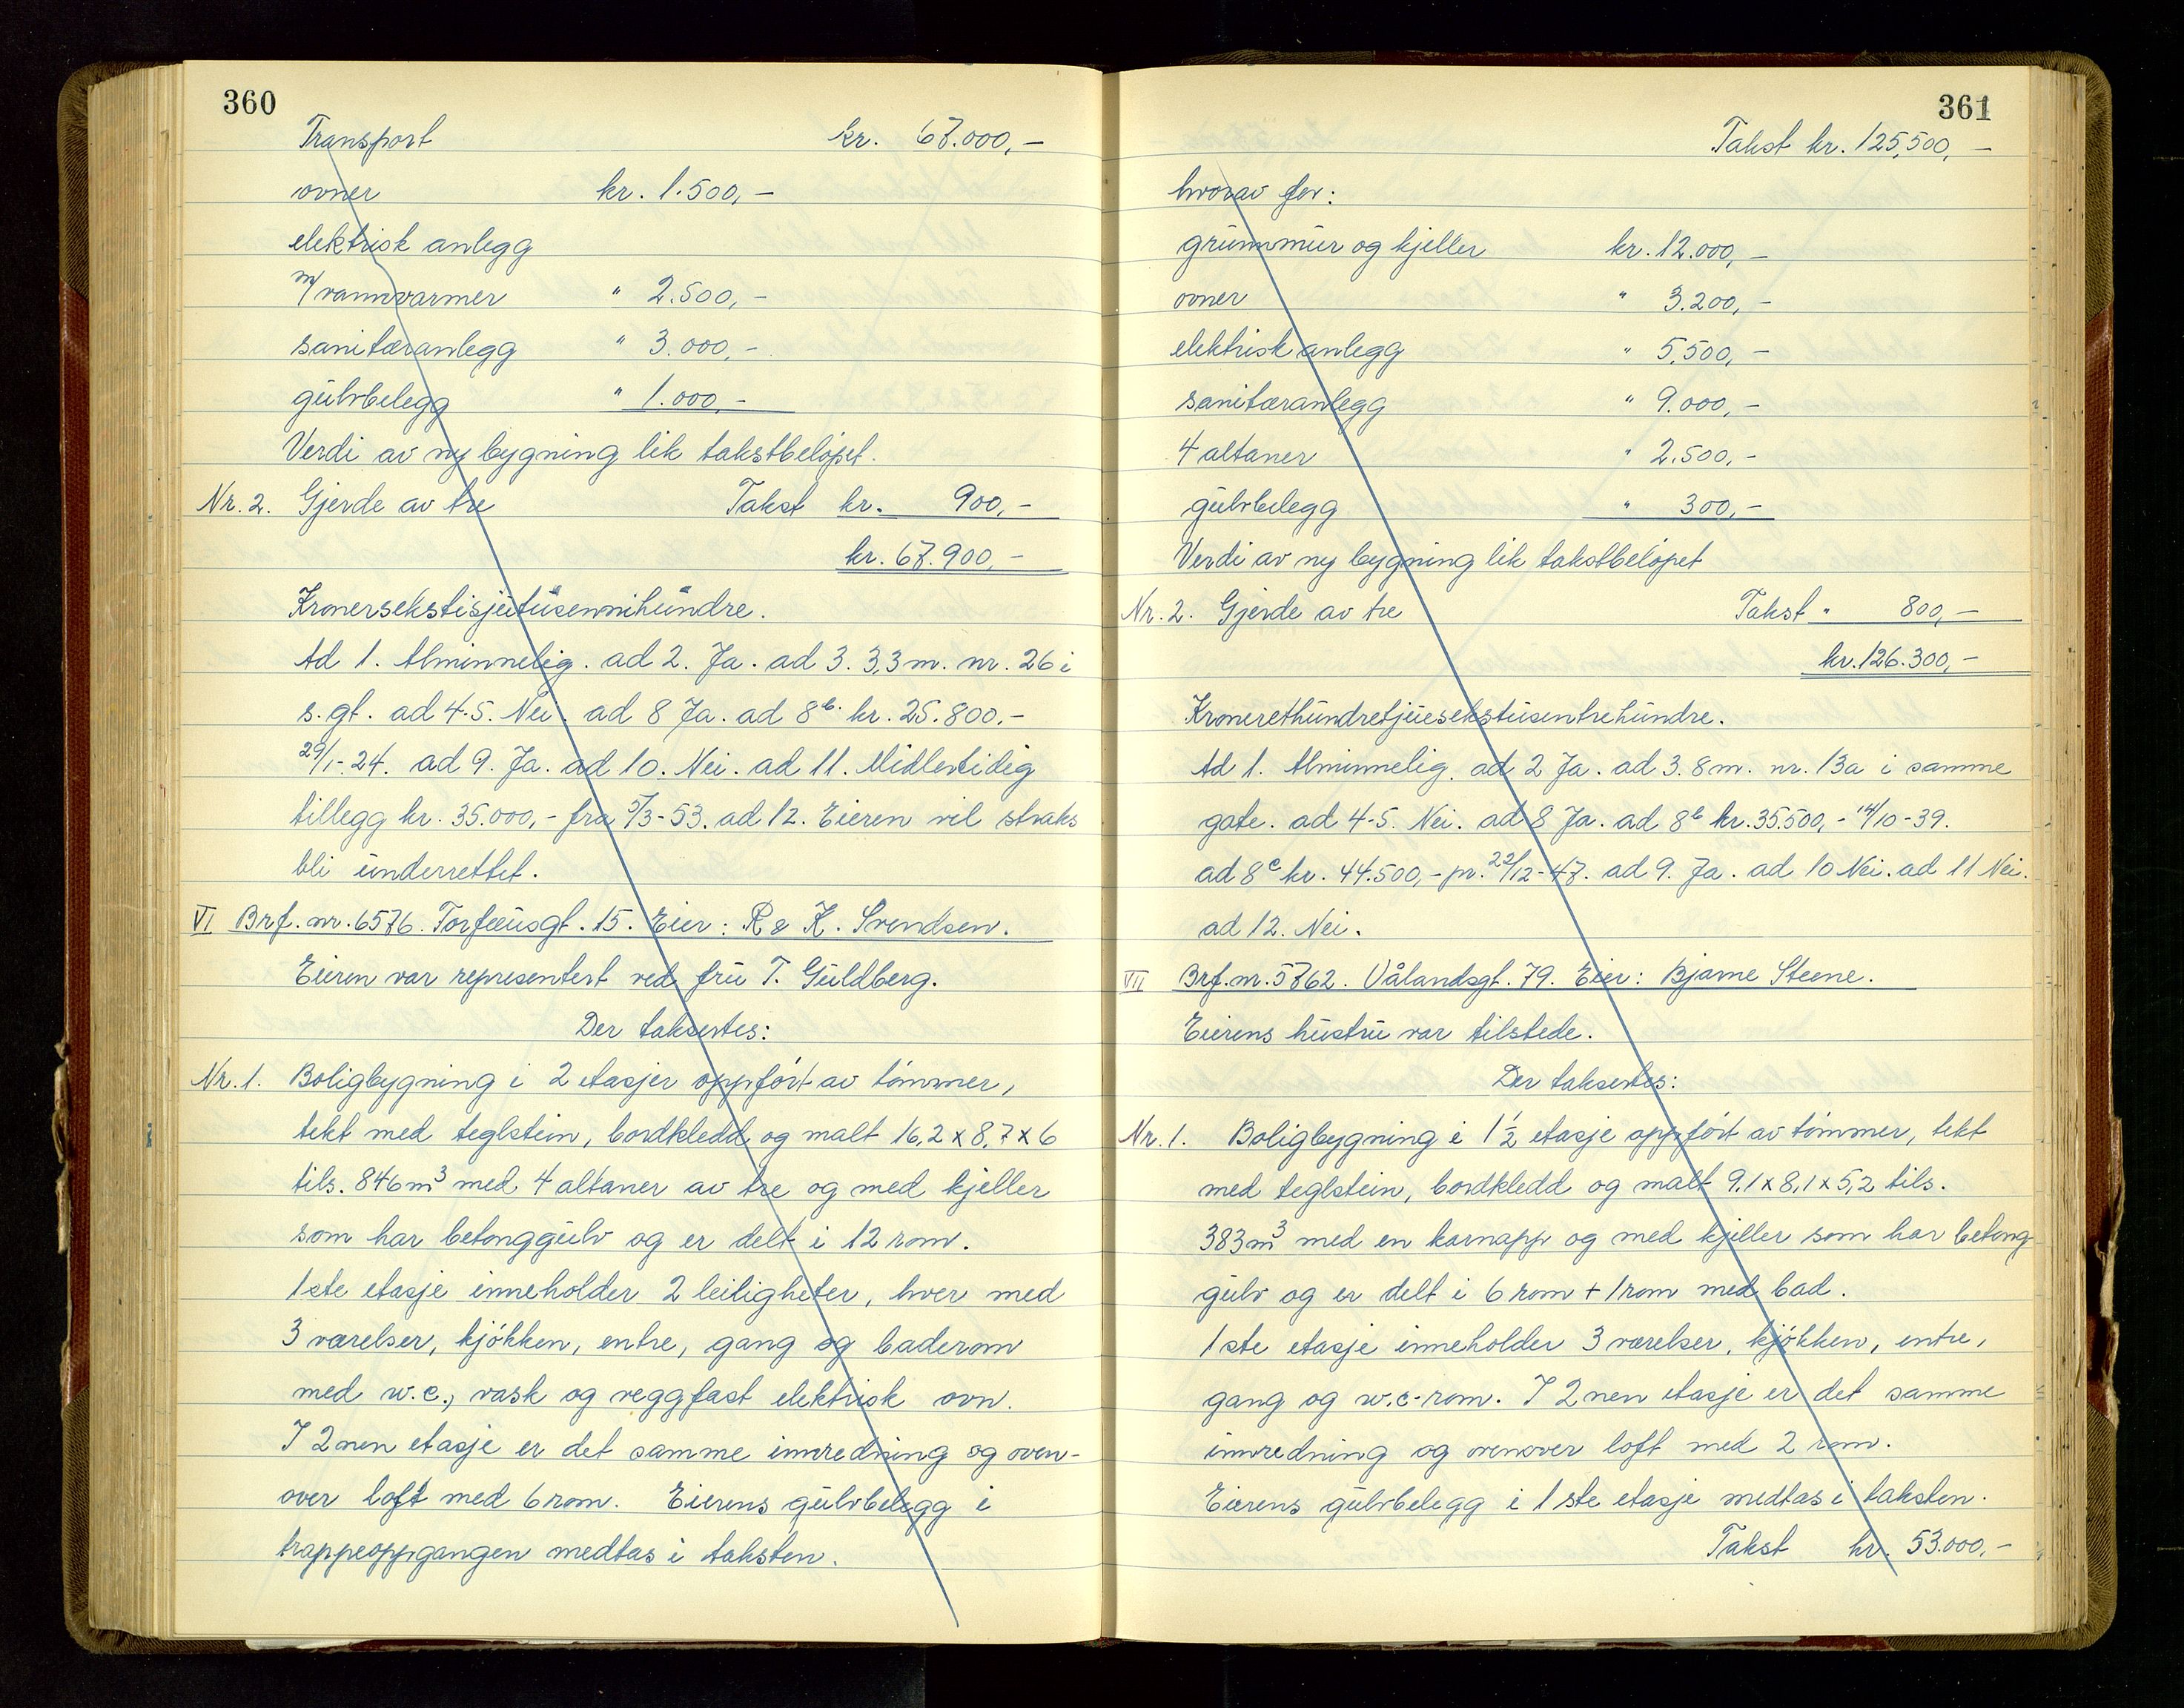 360
Transport kr. 67.000,-
ovner kr. 1.500,-
elektrisk anlegg
m/vannvarmer " 2.500,-
sanitæranlegg " 3.000,-
gulvbelegg " 1.000,-
Verdi av ny bygning lik takstbeløpet.
Nr. 2. Gjerde av tre Takst kr. 900,-
kr. 67.900,-
Kronersekstisjutusennihundre.
Ad 1. Alminnelig. ad 2. Ja. ad 3. 3,3 m. nr. 26 i
s. gt. ad 4-5. Nei. ad 8 Ja. ad 8b. kr. 25.800.-
29/1-24. ad 9. Ja. ad 10. Nei. ad 11. Midlertidig
tillegg kr. 35.000,- fra 5/3-53. ad 12. Eieren vil straks
bli underrettet.
VI Brf. nr. 6576. Torfæusgt. 15. Eier: R & K. Svendsen.
Eieren var representert ved fru T. Guldberg.
Der taksertes:
Nr. 1. Boligbygning i 2 etasjer oppført av tømmer,
tekt med teglstein, bordkledd og malt 16,2 x 8,7 x 6
tils. 846 m³ med 4 altaner av tre og med kjeller
som har betonggulv og er delt i 12 rom.
1ste etasje inneholder 2 leiligheter, hver med
3 værelser, kjøkken, entre, gang og baderom
med w.c., vask og veggfast elektrisk ovn.
I 2nen etasje er det samme innredning og oven-
over loft med 6 rom. Eierens gulvbelegg i
trappeoppgangen medtas i taksten.
361
Takst kr. 125,500,-
hvorav for:
grunnmur og kjeller kr. 12.000,-
ovner " 3.200,-
elektrisk anlegg " 5,500,-
sanitæranlegg " 9.000,-
4 altaner " 2.500,-
gulvbelegg " 300,-
Verdi av ny bygning lik takstbeløpet
Nr. 2. Gjerde av tre Takst " 800,-
kr. 126.300,-
Kronerethundretjuesekstusentrehundre.
Ad 1. Alminnelig. ad 2 Ja. ad 3. 8 m. nr. 13a i samme
gate. ad 4-5. Nei. ad 8 Ja. ad 8b kr. 35.500,- 14/10-39.
ad 8c kr. 44.500,- pr. 22/12-47. ad 9. Ja. ad 10 Nei. ad 11 Nei.
ad 12. Nei.
VII Brf. nr. 5762. Vålandsgt. 79. Eier: Bjarne Steene.
Eierens hustru var tilstede.
Der taksertes:
Nr. 1. Boligbygning i 1½ etasje oppført av tømmer, tekt
med teglstein, bordkledd og malt 9,1 x 8,1 x 5,2 tils.
383 m³ med en karnapp og med kjeller som har betong
gulv og er delt i 6 rom + 1 rom med bad.
1ste etasje inneholder 3 værelser, kjøkken, entre,
gang og w.c-rom. I 2nen etasje er det samme
innredning og ovenover loft med 2 rom.
Eierens gulvbelegg i 1ste etasje medtas i taksten.
Takst kr. 53.000.-